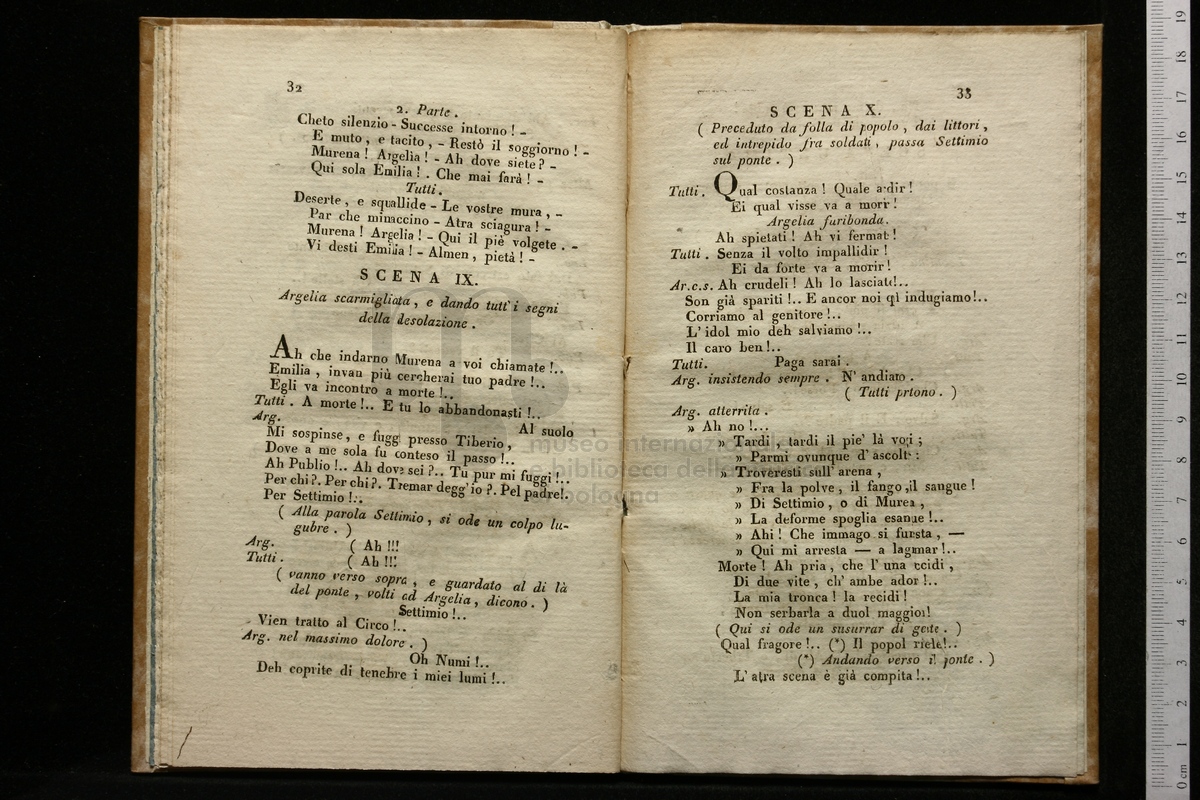 32
2. Parte.
Cheto silenzio - Successe intorno! -
E muto, e tacito, - Restò il soggiorno! -
Murena! Argelia! - Ah dove siete? -
Qui sola Emilia!. Che mai farà! -
Tutti.
Deserte, e squallide - Le vostre mura, -
Par che minaccino - Atra sciagura! -
Murena! Argelia! - Qui il piè volgete. -
Vi desti Emilia! - Almen, pietà! -
SCENA IX.
Argelia scarmigliata, e dando tutt'i segni
della desolazione.
Ah che indarno Murena a voi chiamate!..
Emilia, invan più cercherai tuo padre!..
Egli va incontro a morte!..
Tutti. A morte!.. E tu lo abbandonasti!..
Arg. Al suolo
Mi sospinse, e fuggì presso Tiberio,
Dove a me sola fu conteso il passo!..
Ah Publio!.. Ah dove sei?.. Tu pur mi fuggi!..
Per chi?. Per chi?. Tremar degg'io?. Pel padre!.
Per Settimio!..
( Alla parola Settimio, si ode un colpo lu-
gubre. )
Arg. ( Ah!!!
Tutti. ( Ah!!!
( vanno verso sopra, e guardato al di là
del ponte, volti ad Argelia, dicono. )
Settimio!..
Vien tratto al Circo!..
Arg. nel massimo dolore. )
Oh Numi!..
Deh coprite di tenebre i miei lumi!..
33
SCENA X.
( Preceduto da folla di popolo, dai littori,
ed intrepido fra soldati, passa Settimio
sul ponte. )
Tutti. Qual costanza! Quale ardir!
Ei qual visse va a morir!
Argelia furibonda.
Ah spietati! Ah vi fermate!
Tutti. Senza il volto impallidir!
Ei da forte va a morir!
Ar.c.s. Ah crudeli! Ah lo lasciate!..
Son già spariti!.. E ancor noi quì indugiamo!..
Corriamo al genitore!..
L'idol mio deh salviamo!..
Il caro ben!..
Tutti. Paga sarai.
Arg. insistendo sempre. N'andiamo.
( Tutti prtono. )
Arg. atterrita.
» Ah no!...
» Tardi, tardi il pie' là volgi;
» Parmi ovunque d'ascolt:
» Troveresti sull'arena,
» Fra la polve, il fango, il sangue!
» Di Settimio, o di Murena,
» La deforme spoglia esangue!..
» Ahi! Che immago si funesta, —
» Qui mi arresta — a lagrimar!..
Morte! Ah pria, che l'una uccidi,
Di due vite, ch'ambe ador!..
La mia tronca! la recidi!
Non serbarla a duol maggior!
( Qui si ode un susurrar di gente. )
Qual fragore!.. (*) Il popol riele!..
(*) Andando verso il ponte. )
L'atra scena è già compita!..
museo internazionale
e biblioteca della
bologna